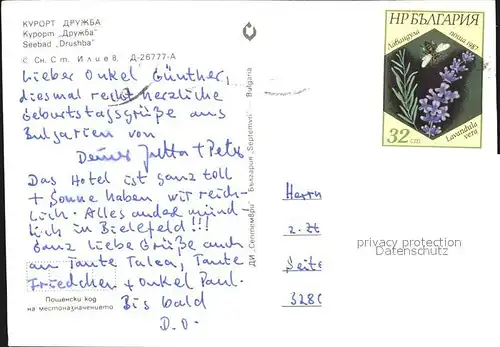 КУРОРТ ДРУЖБА
Курорт „Дружба“
Seebad „Drushba“
С. Сн. Ст. Илиев. Д-26777-А
Lieber Onkel Günther,
diesmal recht herzliche
Geburtstagsgrüße aus
Bulgarien von
Deiner Jutta + Peter
Das Hotel ist ganz toll
+ Sonne haben wir reich-
lich. Alles andere münd-
lich in Bielefeld!!!
Ganz liebe Grüße auch
an Tante Talea, Tante
Friedchen + Onkel Paul.
Bis bald
D.O.
Пощенски код
на местоназначението
ДИ „Септември“ България „Septemvri“ Bulgaria
НР БЪЛГАРИЯ
Лавандула
поща 1987
32 ст.
Lavandula
vera
Herrn
z. Zt
Seite
328
privacy protection
Datenschutz